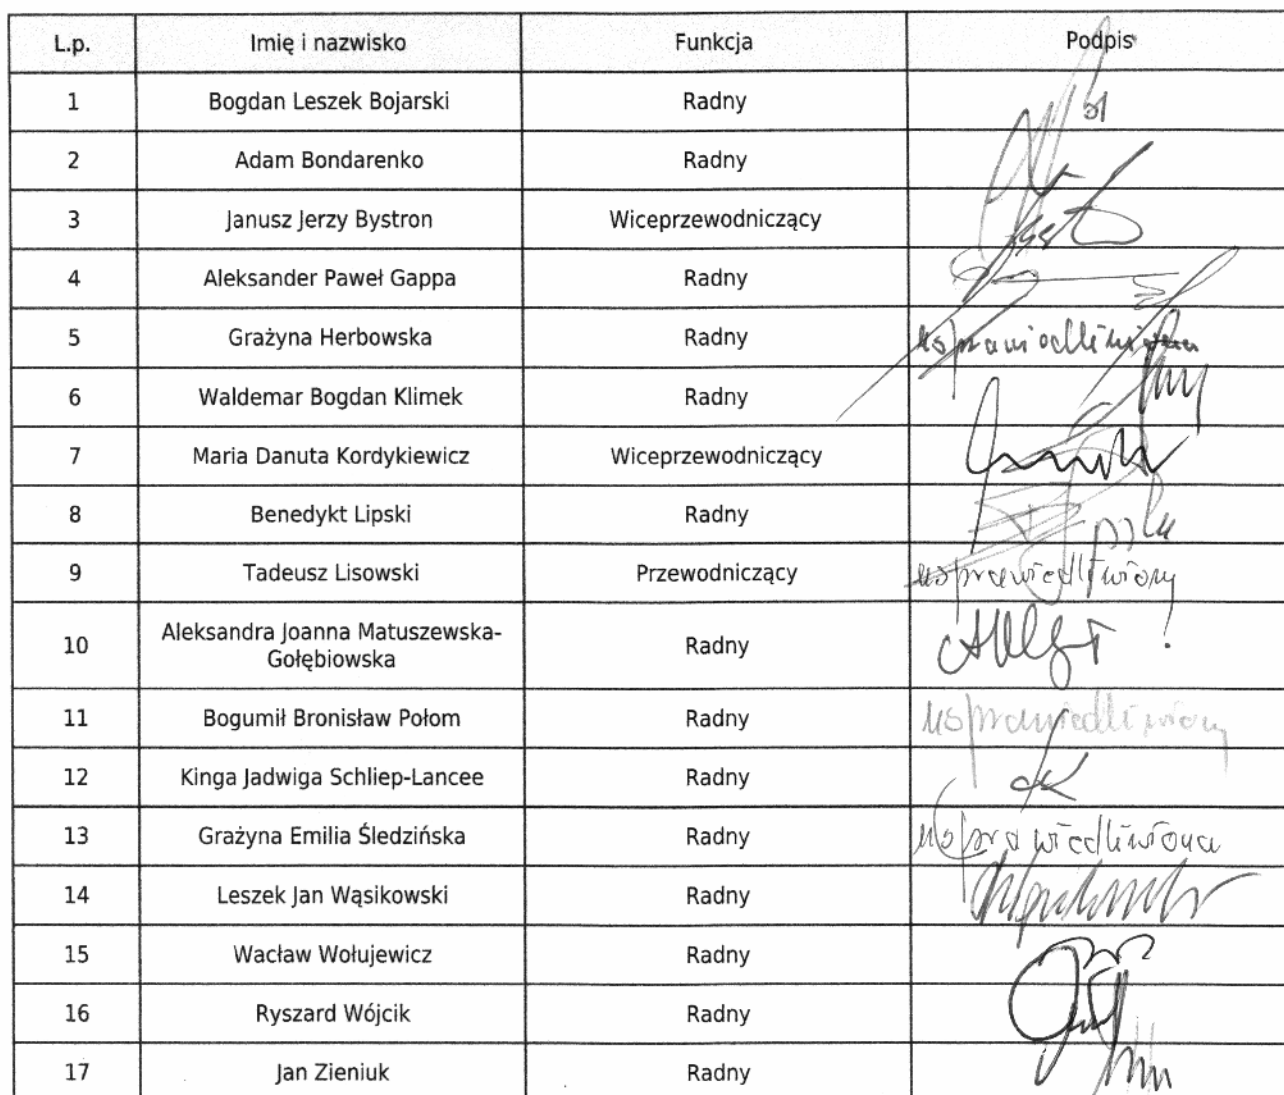 L.p. Imię i nazwisko Funkcja Podpis
1 Bogdan Leszek Bojarski Radny
2 Adam Bondarenko Radny
3 Janusz Jerzy Bystron Wiceprzewodniczący
4 Aleksander Paweł Gappa Radny
5 Grażyna Herbowska Radny usprawiedliwiona
6 Waldemar Bogdan Klimek Radny
7 Maria Danuta Kordykiewicz Wiceprzewodniczący
8 Benedykt Lipski Radny
9 Tadeusz Lisowski Przewodniczący usprawiedliwiony
10 Aleksandra Joanna Matuszewska-
Gołębiowska Radny
11 Bogumił Bronisław Połom Radny usprawiedliwiony
12 Kinga Jadwiga Schliep-Lancee Radny
13 Grażyna Emilia Śledzińska Radny usprawiedliwiona
14 Leszek Jan Wąsikowski Radny
15 Wacław Wołujewicz Radny
16 Ryszard Wójcik Radny
17 Jan Zieniuk Radny